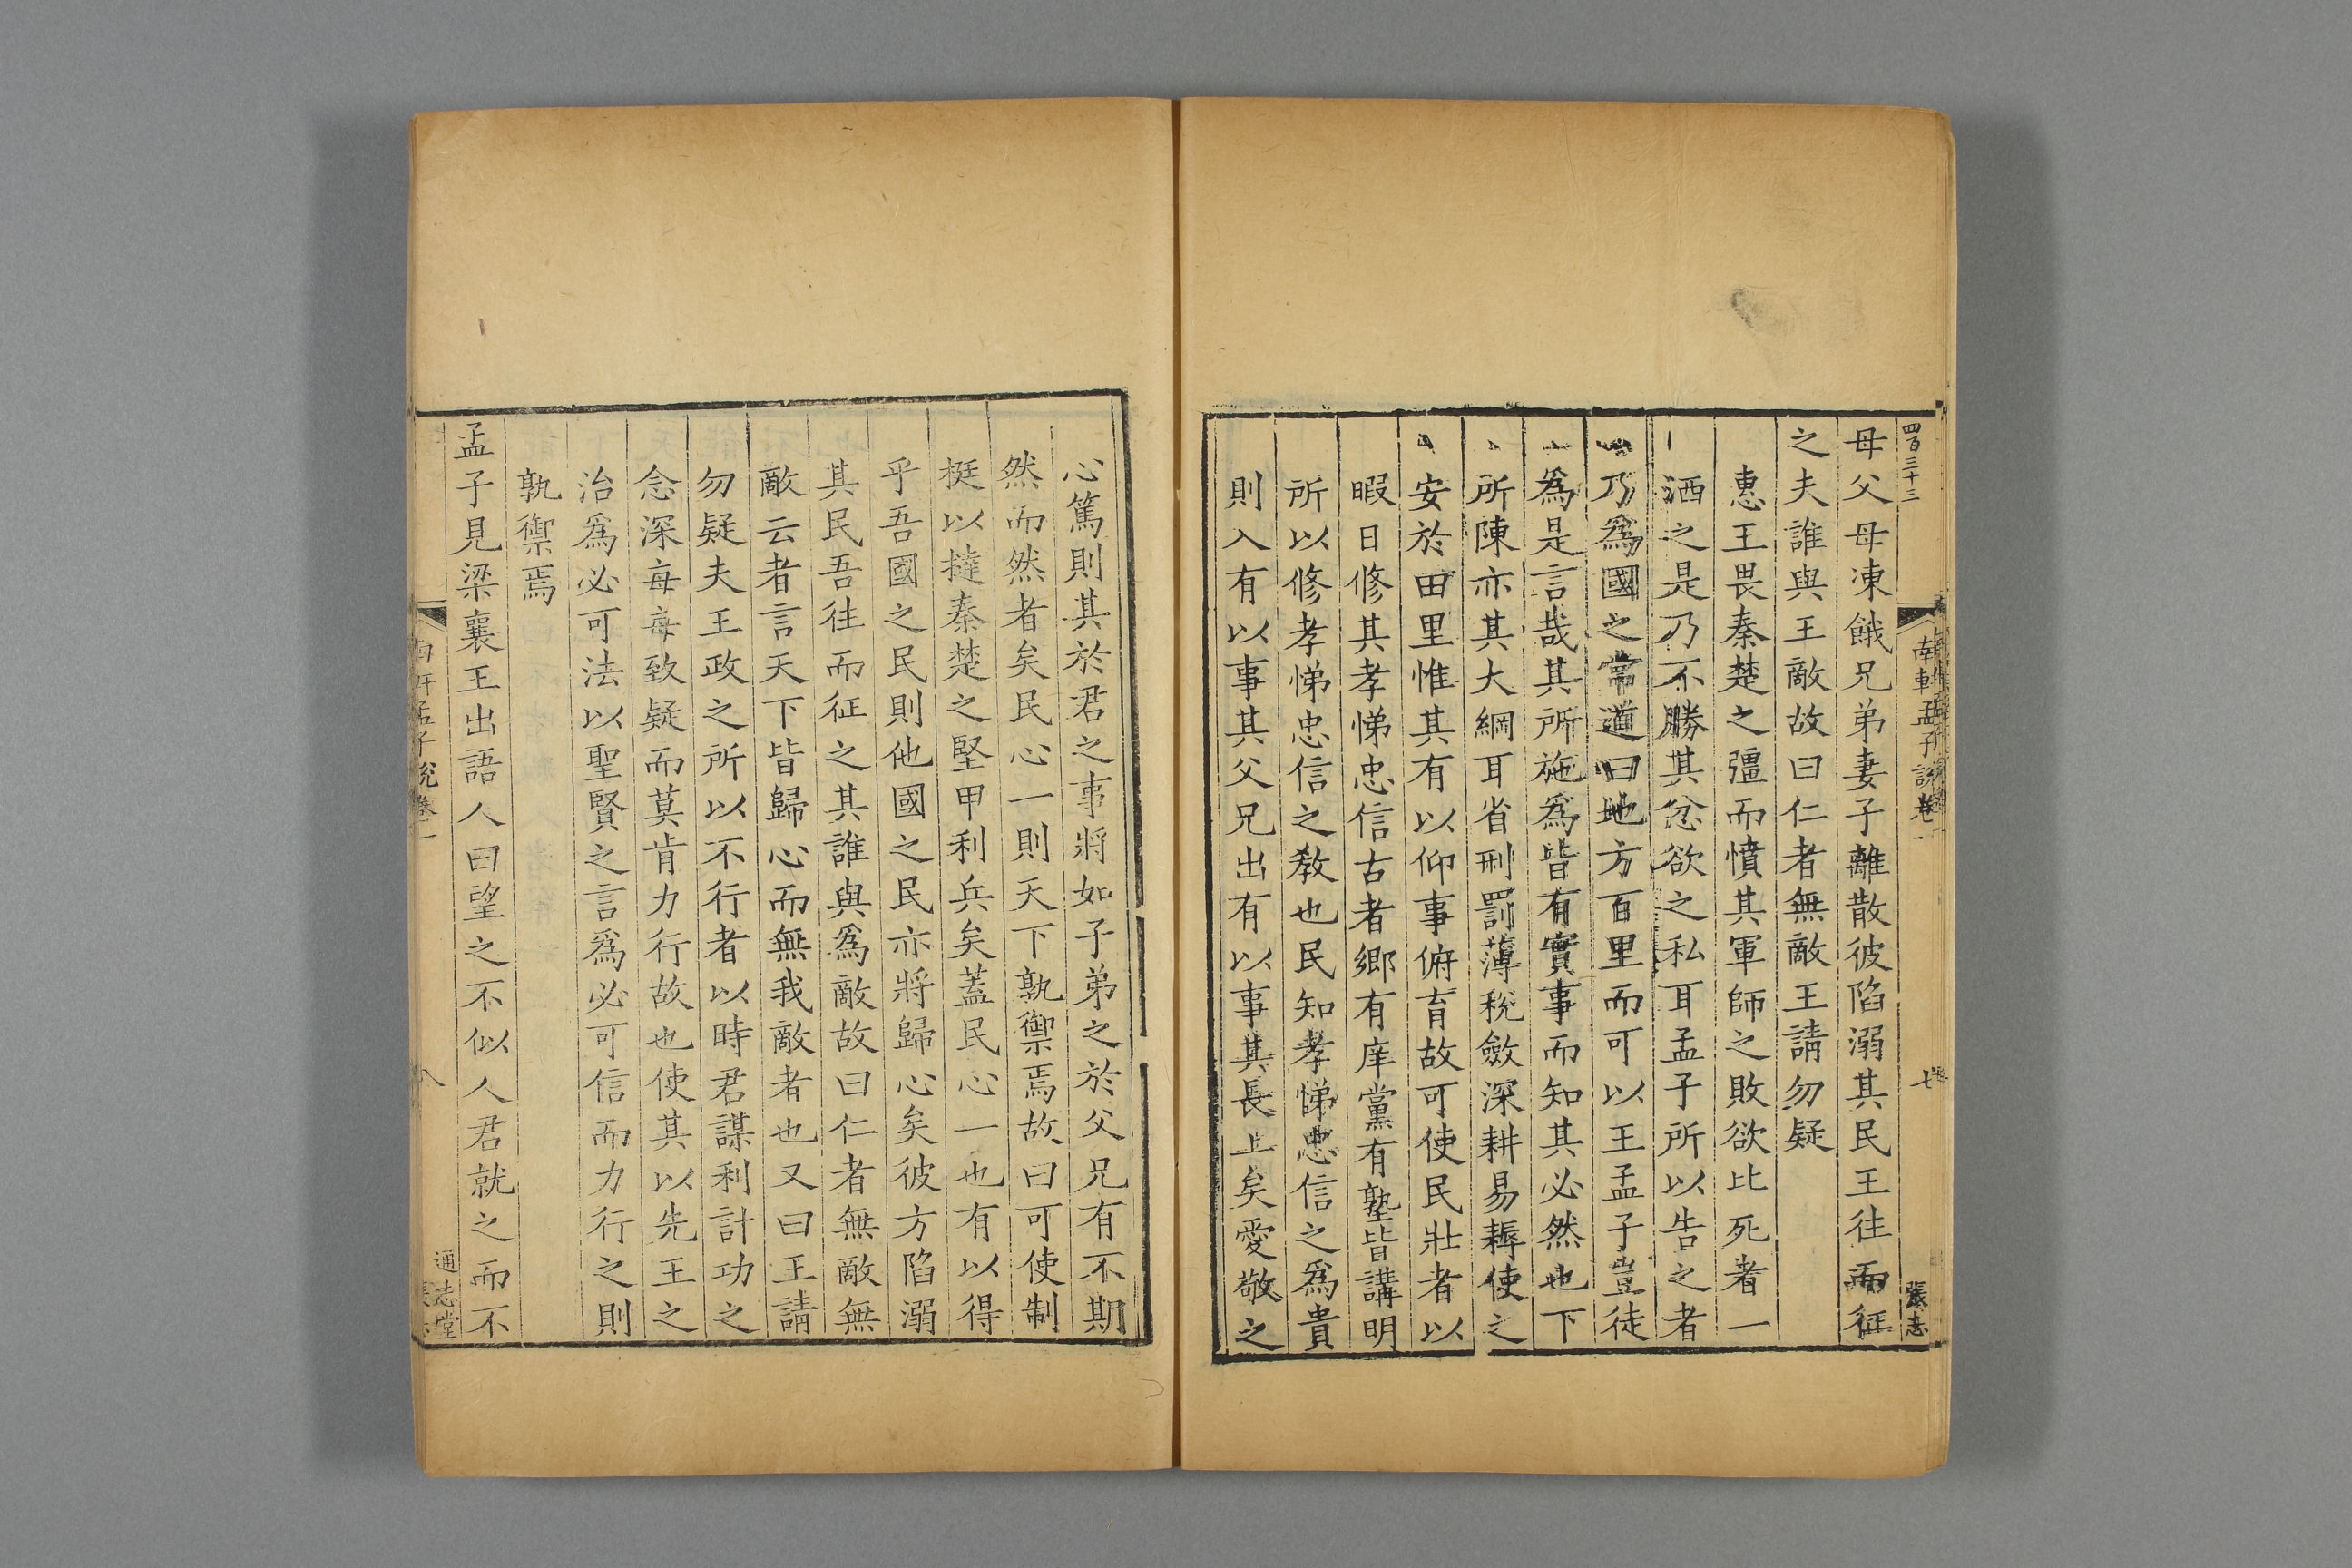 四百三十三
南軒孟子說卷一
七
張志
母父母凍餓兄弟妻子離散彼陷溺其民王往而征
之夫誰與王敵故曰仁者無敵王請勿疑
惠王畏秦楚之彊而憤其軍師之敗欲比死者一
洒之是乃不勝其忿欲之私耳孟子所以告之者
乃爲國之常道曰地方百里而可以王孟子豈徒
爲是言哉其所施爲皆有實事而知其必然也下
所陳亦其大綱耳省刑罰薄稅斂深耕易耨使之
安於田里惟其有以仰事俯育故可使民壯者以
暇日修其孝悌忠信古者鄉有庠黨有塾皆講明
所以修孝悌忠信之教也民知孝悌忠信之爲貴
則入有以事其父兄出有以事其長上矣愛敬之
心篤則其於君之事將如子弟之於父兄有不期
然而然者矣民心一則天下孰禦焉故曰可使制
梃以撻秦楚之堅甲利兵矣蓋民心一也有以得
乎吾國之民則他國之民亦將歸心矣彼方陷溺
其民吾往而征之其誰與爲敵故曰仁者無敵無
敵云者言天下皆歸心而無我敵者也又曰王請
勿疑夫王政之所以不行者以時君謀利計功之
念深每每致疑而莫肯力行故也使其以先王之
治爲必可法以聖賢之言爲必可信而力行之則
孰禦焉
孟子見梁襄王出語人曰望之不似人君就之而不
孟子說卷一
八
通志堂